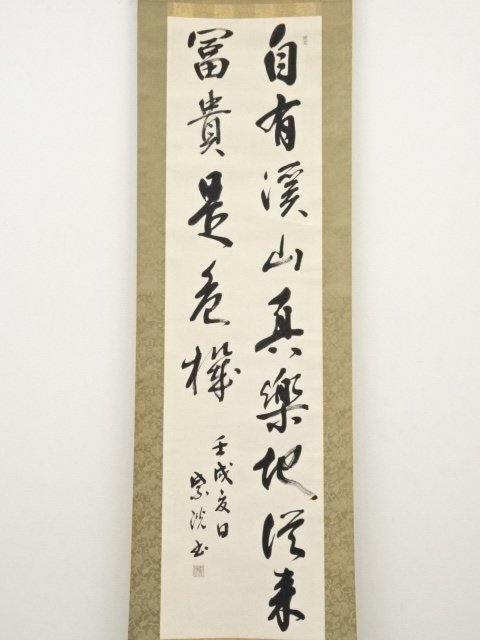 自有溪山真樂地從来
冨貴是危機
壬戌夏日
紫洸書